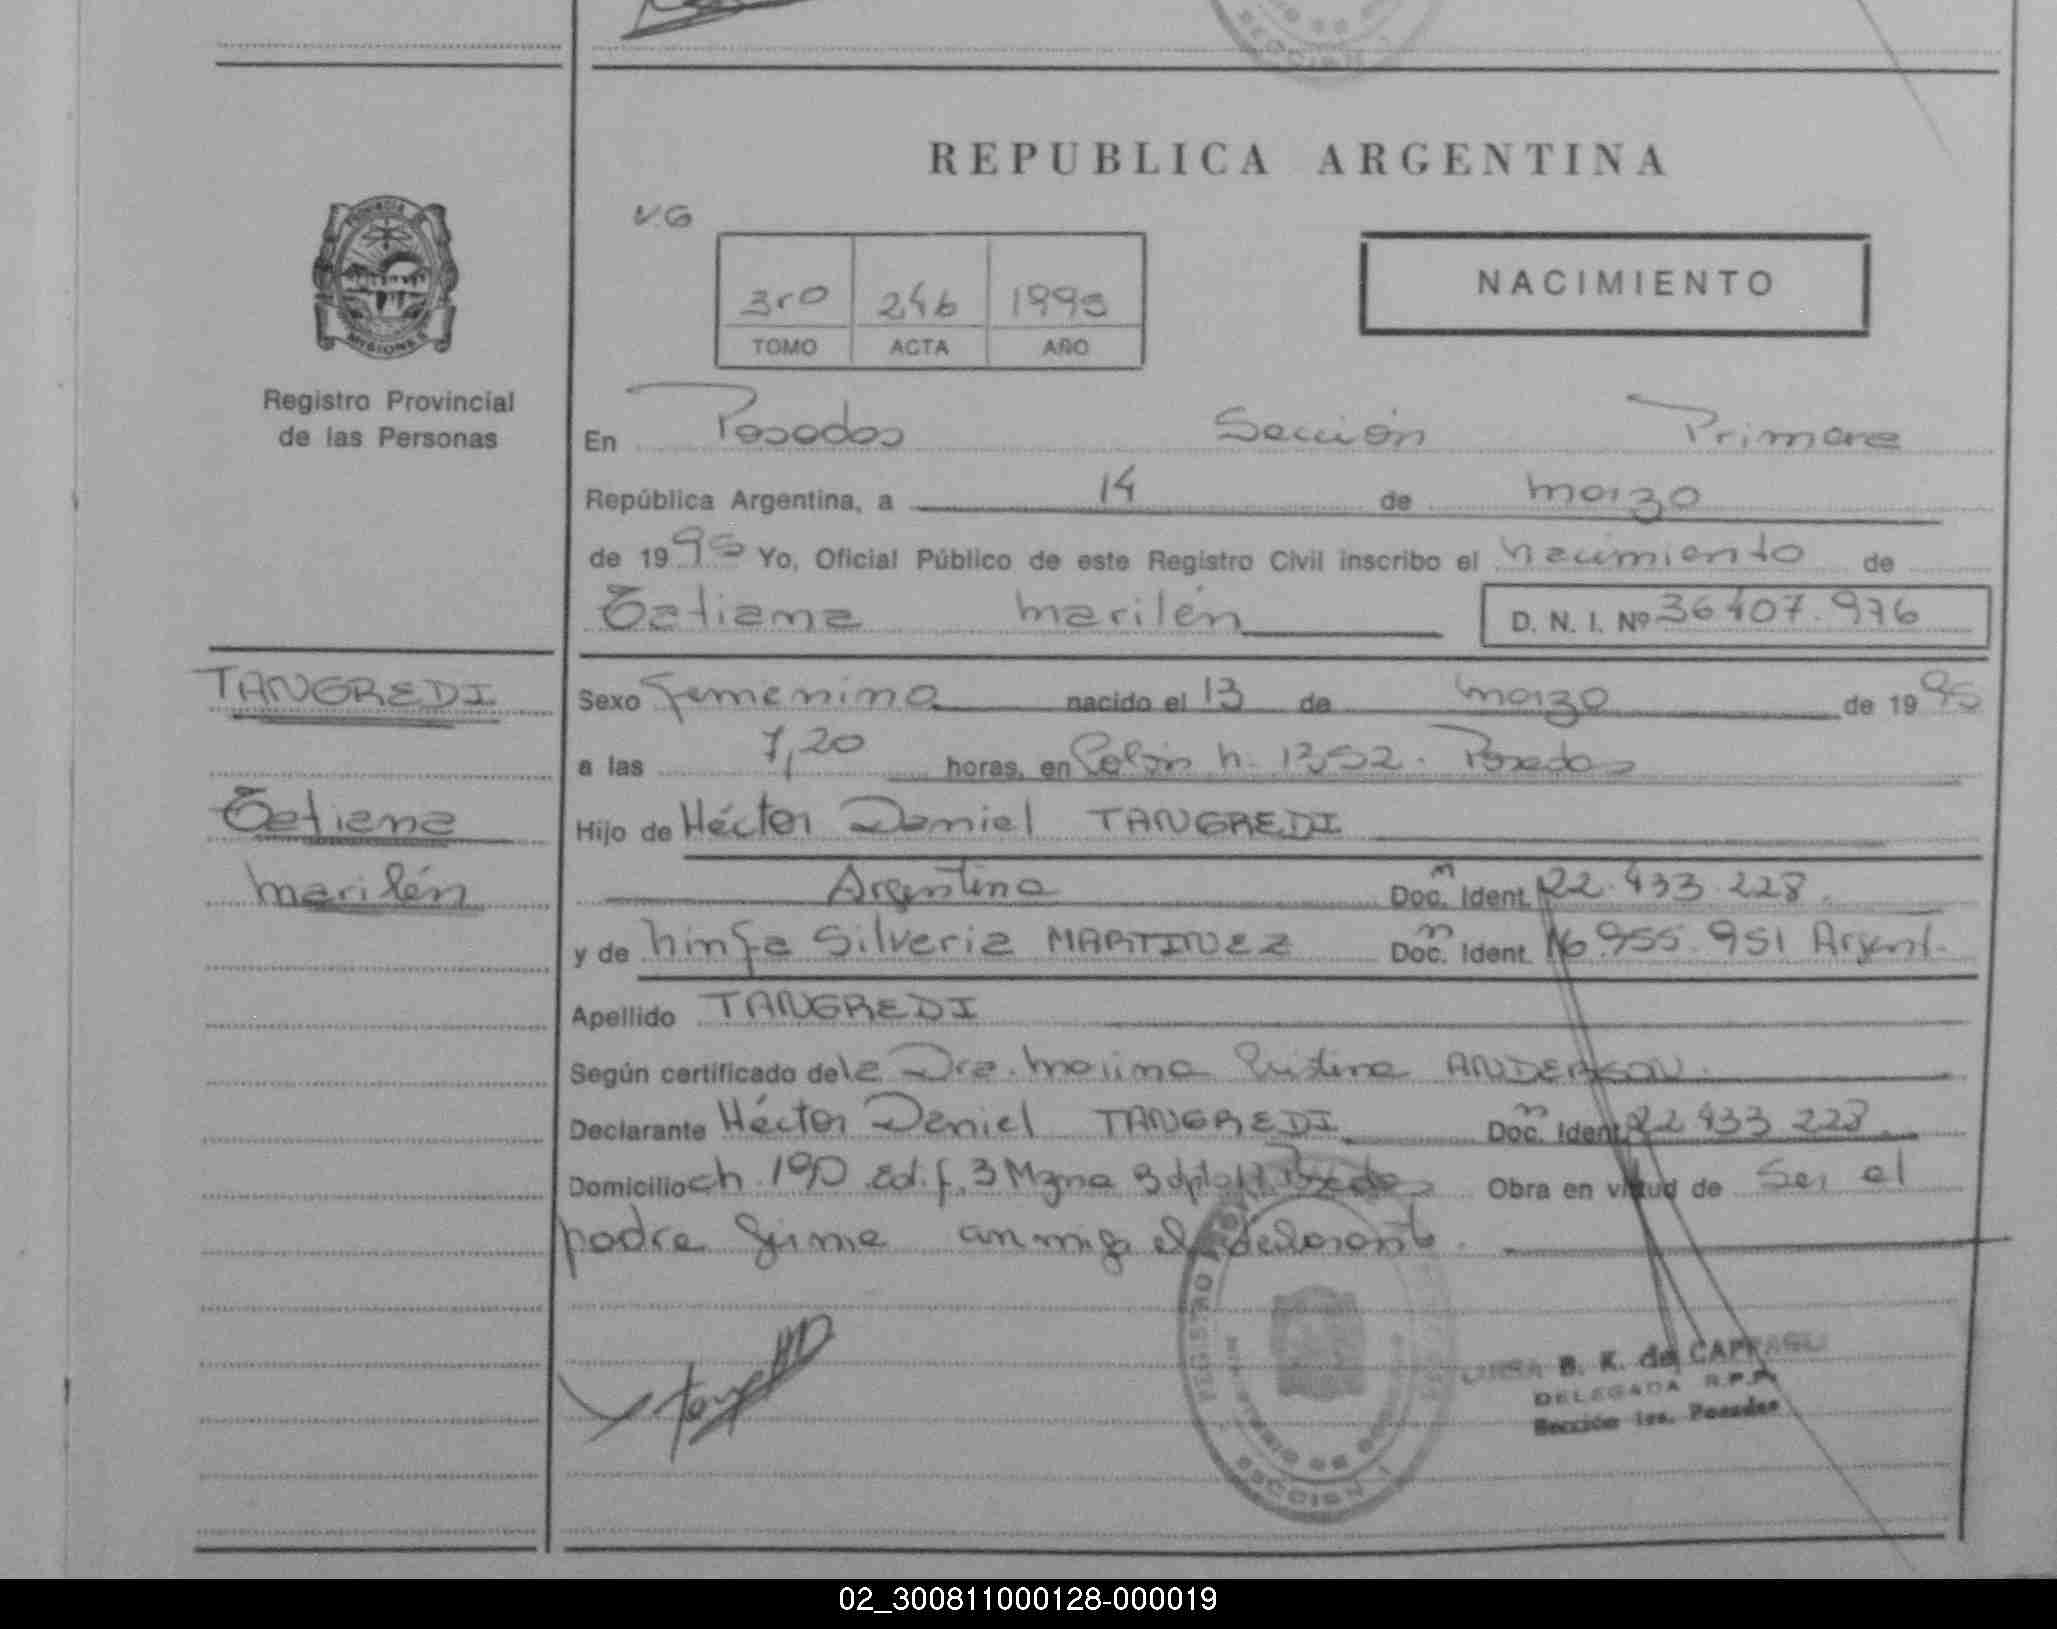 REPUBLICA ARGENTINA
V.G
NACIMIENTO
3ro 246 1995
TOMO ACTA AÑO
PROVINCIA DE MISIONES
Registro Provincial
de las Personas
En Posadas Sección Primera
República Argentina, a 14 de marzo
de 1995 Yo, Oficial Público de este Registro Civil inscribo el nacimiento de
Tatiana Marilén D. N. I. Nº 36407.976
TANGREDI
Tatiana
Marilén
Sexo femenino nacido el 13 de marzo de 1995
a las 7,20 horas, en Colón n. 1352. Posadas
Hijo de Héctor Daniel TANGREDI
Argentino Doc. Ident. 22.433.228.
y de Ninfa Silveria MARTINEZ Doc. Ident. 16.955.951 Argent.
Apellido TANGREDI
Según certificado de la Dra. Marina Cristina ANDERSON.
Declarante Héctor Daniel TANGREDI Doc. Ident. 22.433.228.
Domicilio ch. 190 Edif. 3 Mzna 3 Posadas Obra en virtud de Ser el
padre firma conmigo el declarante.
REGISTRO
MINISTERIO DE
SECCION 1
B. K. de
DELEGADA R.P.P.
Sección 1ra. Posadas
02_300811000128-000019